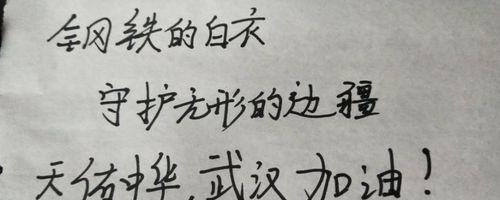 钢铁的白衣
守护无形的边疆
天佑中华,武汉加油!